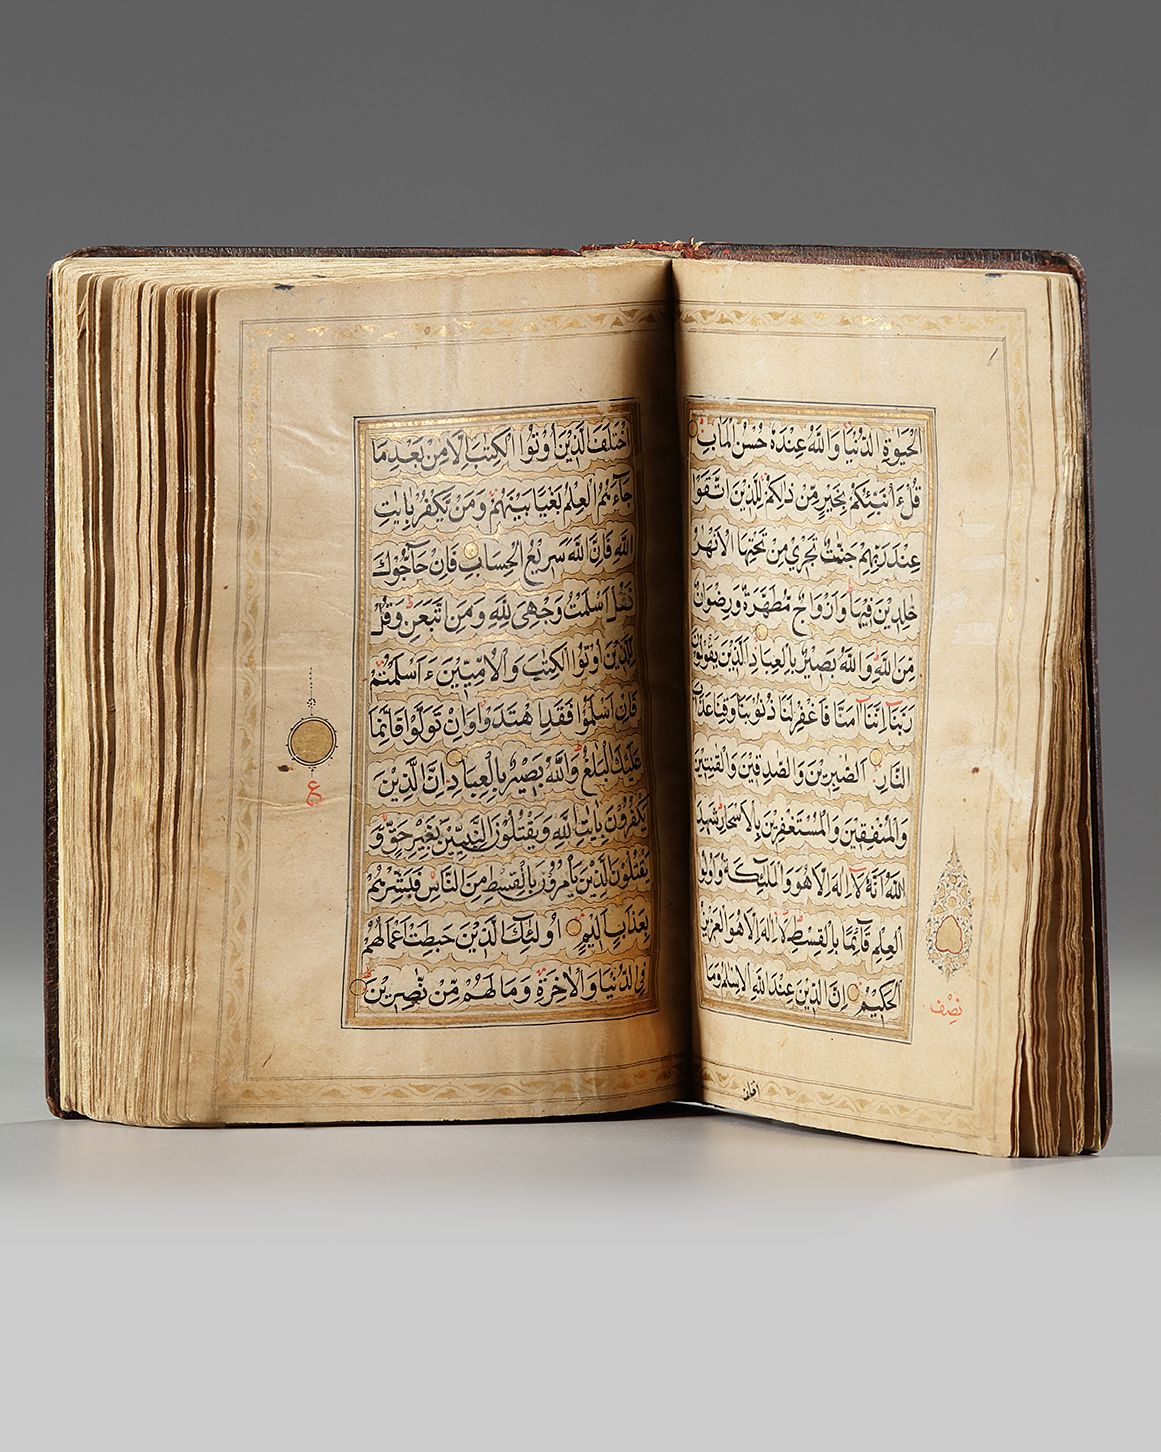 الحَيٰوةِ الدُّنْيَا وَاللّٰهُ عِنْدَهُ حُسْنُ الْمَاٰبِ
قُلْ ءَاُنَبِّئُكُمْ بِخَيْرٍ مِّنْ ذٰلِكُمْ لِلَّذِيْنَ اتَّقَوْا
عِنْدَ رَبِّهِمْ جَنّٰتٌ تَجْرِيْ مِنْ تَحْتِهَا الْاَنْهٰرُ
خٰلِدِيْنَ فِيْهَا وَاَزْوَاجٌ مُّطَهَّرَةٌ وَّرِضْوَانٌ
مِّنَ اللّٰهِ وَاللّٰهُ بَصِيْرٌ بِالْعِبَادِ الَّذِيْنَ يَقُوْلُوْنَ
رَبَّنَا اِنَّنَا اٰمَنَّا فَاغْفِرْ لَنَا ذُنُوْبَنَا وَقِنَا عَذَابَ
النَّارِ الصّٰبِرِيْنَ وَالصّٰدِقِيْنَ وَالْقٰنِتِيْنَ
وَالْمُنْفِقِيْنَ وَالْمُسْتَغْفِرِيْنَ بِالْاَسْحَارِ شَهِدَ
اللّٰهُ اَنَّهُ لَا اِلٰهَ اِلَّا هُوَ وَالْمَلٰئِكَةُ وَاُولُوا
الْعِلْمِ قَائِمًا بِالْقِسْطِ لَا اِلٰهَ اِلَّا هُوَ الْعَزِيْزُ
الْحَكِيْمُ اِنَّ الدِّيْنَ عِنْدَ اللّٰهِ الْاِسْلَامُ وَمَا
نِصْف
اختلف
اخْتَلَفَ الَّذِيْنَ اُوْتُوا الْكِتٰبَ اِلَّا مِنْ بَعْدِ مَا
جَاءَهُمُ الْعِلْمُ بَغْيًا بَيْنَهُمْ وَمَنْ يَّكْفُرْ بِاٰيٰتِ
اللّٰهِ فَاِنَّ اللّٰهَ سَرِيْعُ الْحِسَابِ فَاِنْ حَاجُّوْكَ
فَقُلْ اَسْلَمْتُ وَجْهِيَ لِلّٰهِ وَمَنِ اتَّبَعَنِ وَقُلْ
لِّلَّذِيْنَ اُوْتُوا الْكِتٰبَ وَالْاُمِّيّٖنَ ءَاَسْلَمْتُمْ
فَاِنْ اَسْلَمُوْا فَقَدِ اهْتَدَوْا وَاِنْ تَوَلَّوْا فَاِنَّمَا
عَلَيْكَ الْبَلٰغُ وَاللّٰهُ بَصِيْرٌ بِالْعِبَادِ اِنَّ الَّذِيْنَ
يَكْفُرُوْنَ بِاٰيٰتِ اللّٰهِ وَيَقْتُلُوْنَ النَّبِيّٖنَ بِغَيْرِ حَقٍّ وَّ
يَقْتُلُوْنَ الَّذِيْنَ يَأْمُرُوْنَ بِالْقِسْطِ مِنَ النَّاسِ فَبَشِّرْهُمْ
بِعَذَابٍ اَلِيْمٍ اُولٰئِكَ الَّذِيْنَ حَبِطَتْ اَعْمَالُهُمْ
فِي الدُّنْيَا وَالْاٰخِرَةِ وَمَا لَهُمْ مِّنْ نّٰصِرِيْنَ
ع